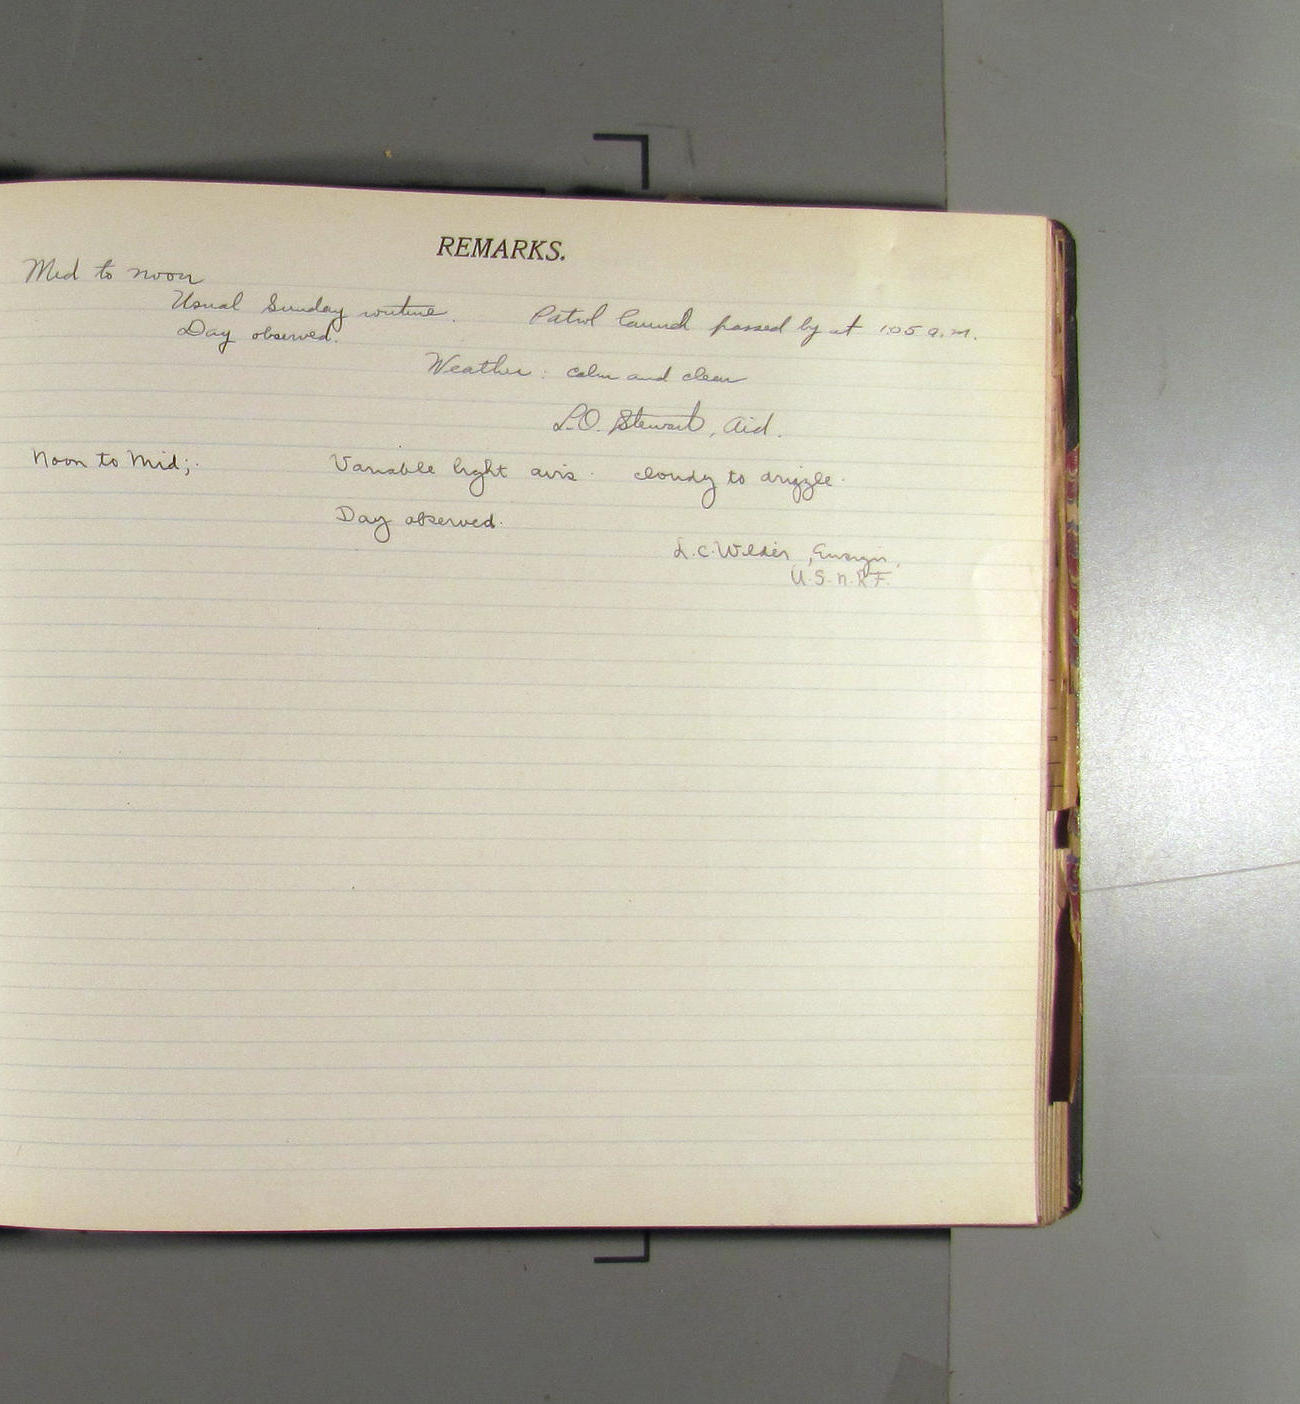 REMARKS.
Mid to noon
Usual Sunday routine. Patrol launch passed by at 1:05 a.m.
Day observed.
Weather: calm and clear
L.O. Stewart, Aid.
Noon to Mid;. Variable light airs. cloudy to drizzle.
Day observed.
L.C. Wilder, Ensign,
U.S.N.R.F.